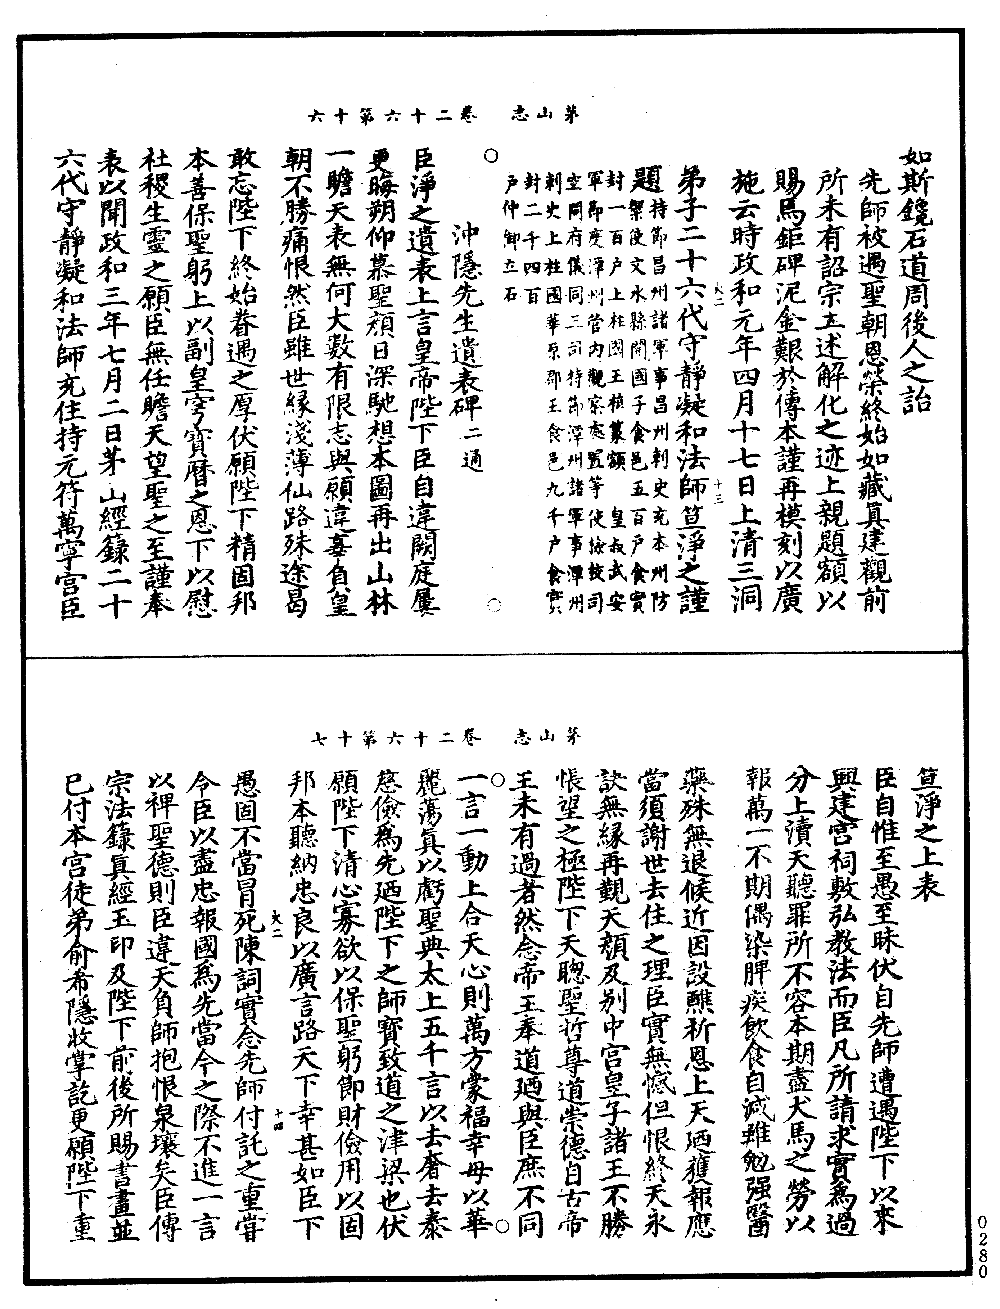 茅山志　卷二十六第十六
如斯鏡石道周後人之詒
先師被遇聖朝恩榮終始如藏真建觀前
所未有詔宗玄述解化之迹上親題額以
賜焉鉅碑泥金艱於傳本謹再模刻以廣
施云時政和元年四月十七日上清三洞
弟子二十六代守靜凝和法師笪淨之謹
題持節昌州諸軍事昌州刺史充本州防
禦使文水縣開國子食邑五百戶食實
封一百戶上柱國王模篆額皇叔武安
軍節度潭州管內觀察處置等使檢校司
空開府儀同三司持節潭州諸軍事潭州
刺史上柱國華原郡王食邑九千戶食實
封二千四百
戶仲御立石
沖隱先生遺表碑二通
臣淨之遺表上言皇帝陛下臣自違闕庭屢
更晦朔仰慕聖顏日深馳想本圖再出山林
一瞻天表無何大數有限志與願違辜負皇
朝不勝痛恨然臣雖世緣淺薄仙路殊途曷
敢忘陛下終始眷遇之厚伏願陛下精固邦
本善保聖躬上以副皇穹寶曆之恩下以慰
社稷生靈之願臣無任瞻天望聖之至謹奉
表以聞政和三年七月二日茅山經籙二十
六代守靜凝和法師充住持元符萬寧宮臣
茅山志　卷二十六第十七
笪淨之上表
臣自惟至愚至昧伏自先師遭遇陛下以來
興建宮祠敷弘教法而臣凡所請求實為過
分上瀆天聽罪所不容本期盡犬馬之勞以
報萬一不期偶染脾疾飲食自減雖勉强醫
藥殊無退候近因設醮祈恩上天迺獲報應
當須謝世去住之理臣實無憾但恨終天永
訣無緣再覲天顏及別中宮皇子諸王不勝
悵望之極陛下天聰聖哲尊道崇德自古帝
王未有過者然念帝王奉道迺與臣庶不同
一言一動上合天心則萬方蒙福幸毋以華
麗蕩真以虧聖典太上五千言以去奢去泰
慈儉為先迺陛下之師寶致道之津梁也伏
願陛下清心寡欲以保聖躬節財儉用以固
邦本聽納忠良以廣言路天下幸甚如臣下
愚固不當冒死陳詞實念先師付託之重嘗
令臣以盡忠報國為先當今之際不進一言
以裨聖德則臣違天負師抱恨泉壤矣臣傳
宗法籙真經玉印及陛下前後所賜書畫並
已付本宮徒弟俞希隱收掌訖更願陛下重
十三
十四
0280